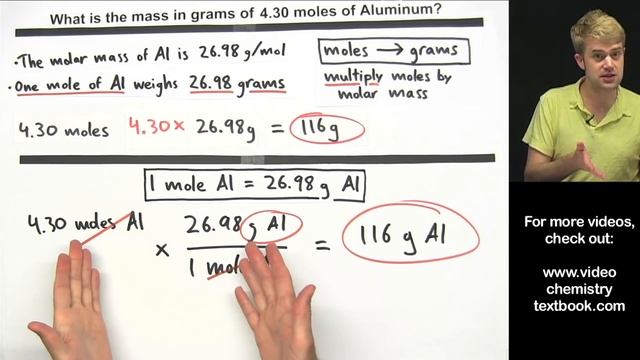 What is the mass in grams of 4.30 moles of Aluminum?
• The molar mass of Al is 26.98 g/mol
• One mole of Al weighs 26.98 grams
moles → grams
multiply moles by
molar mass
4.30 moles 4.30 × 26.98g = 116g
1 mole Al = 26.98 g Al
4.30 moles Al × 26.98 g Al / 1 mole = 116 g Al
For more videos,
check out:
www.video
chemistry
textbook.com